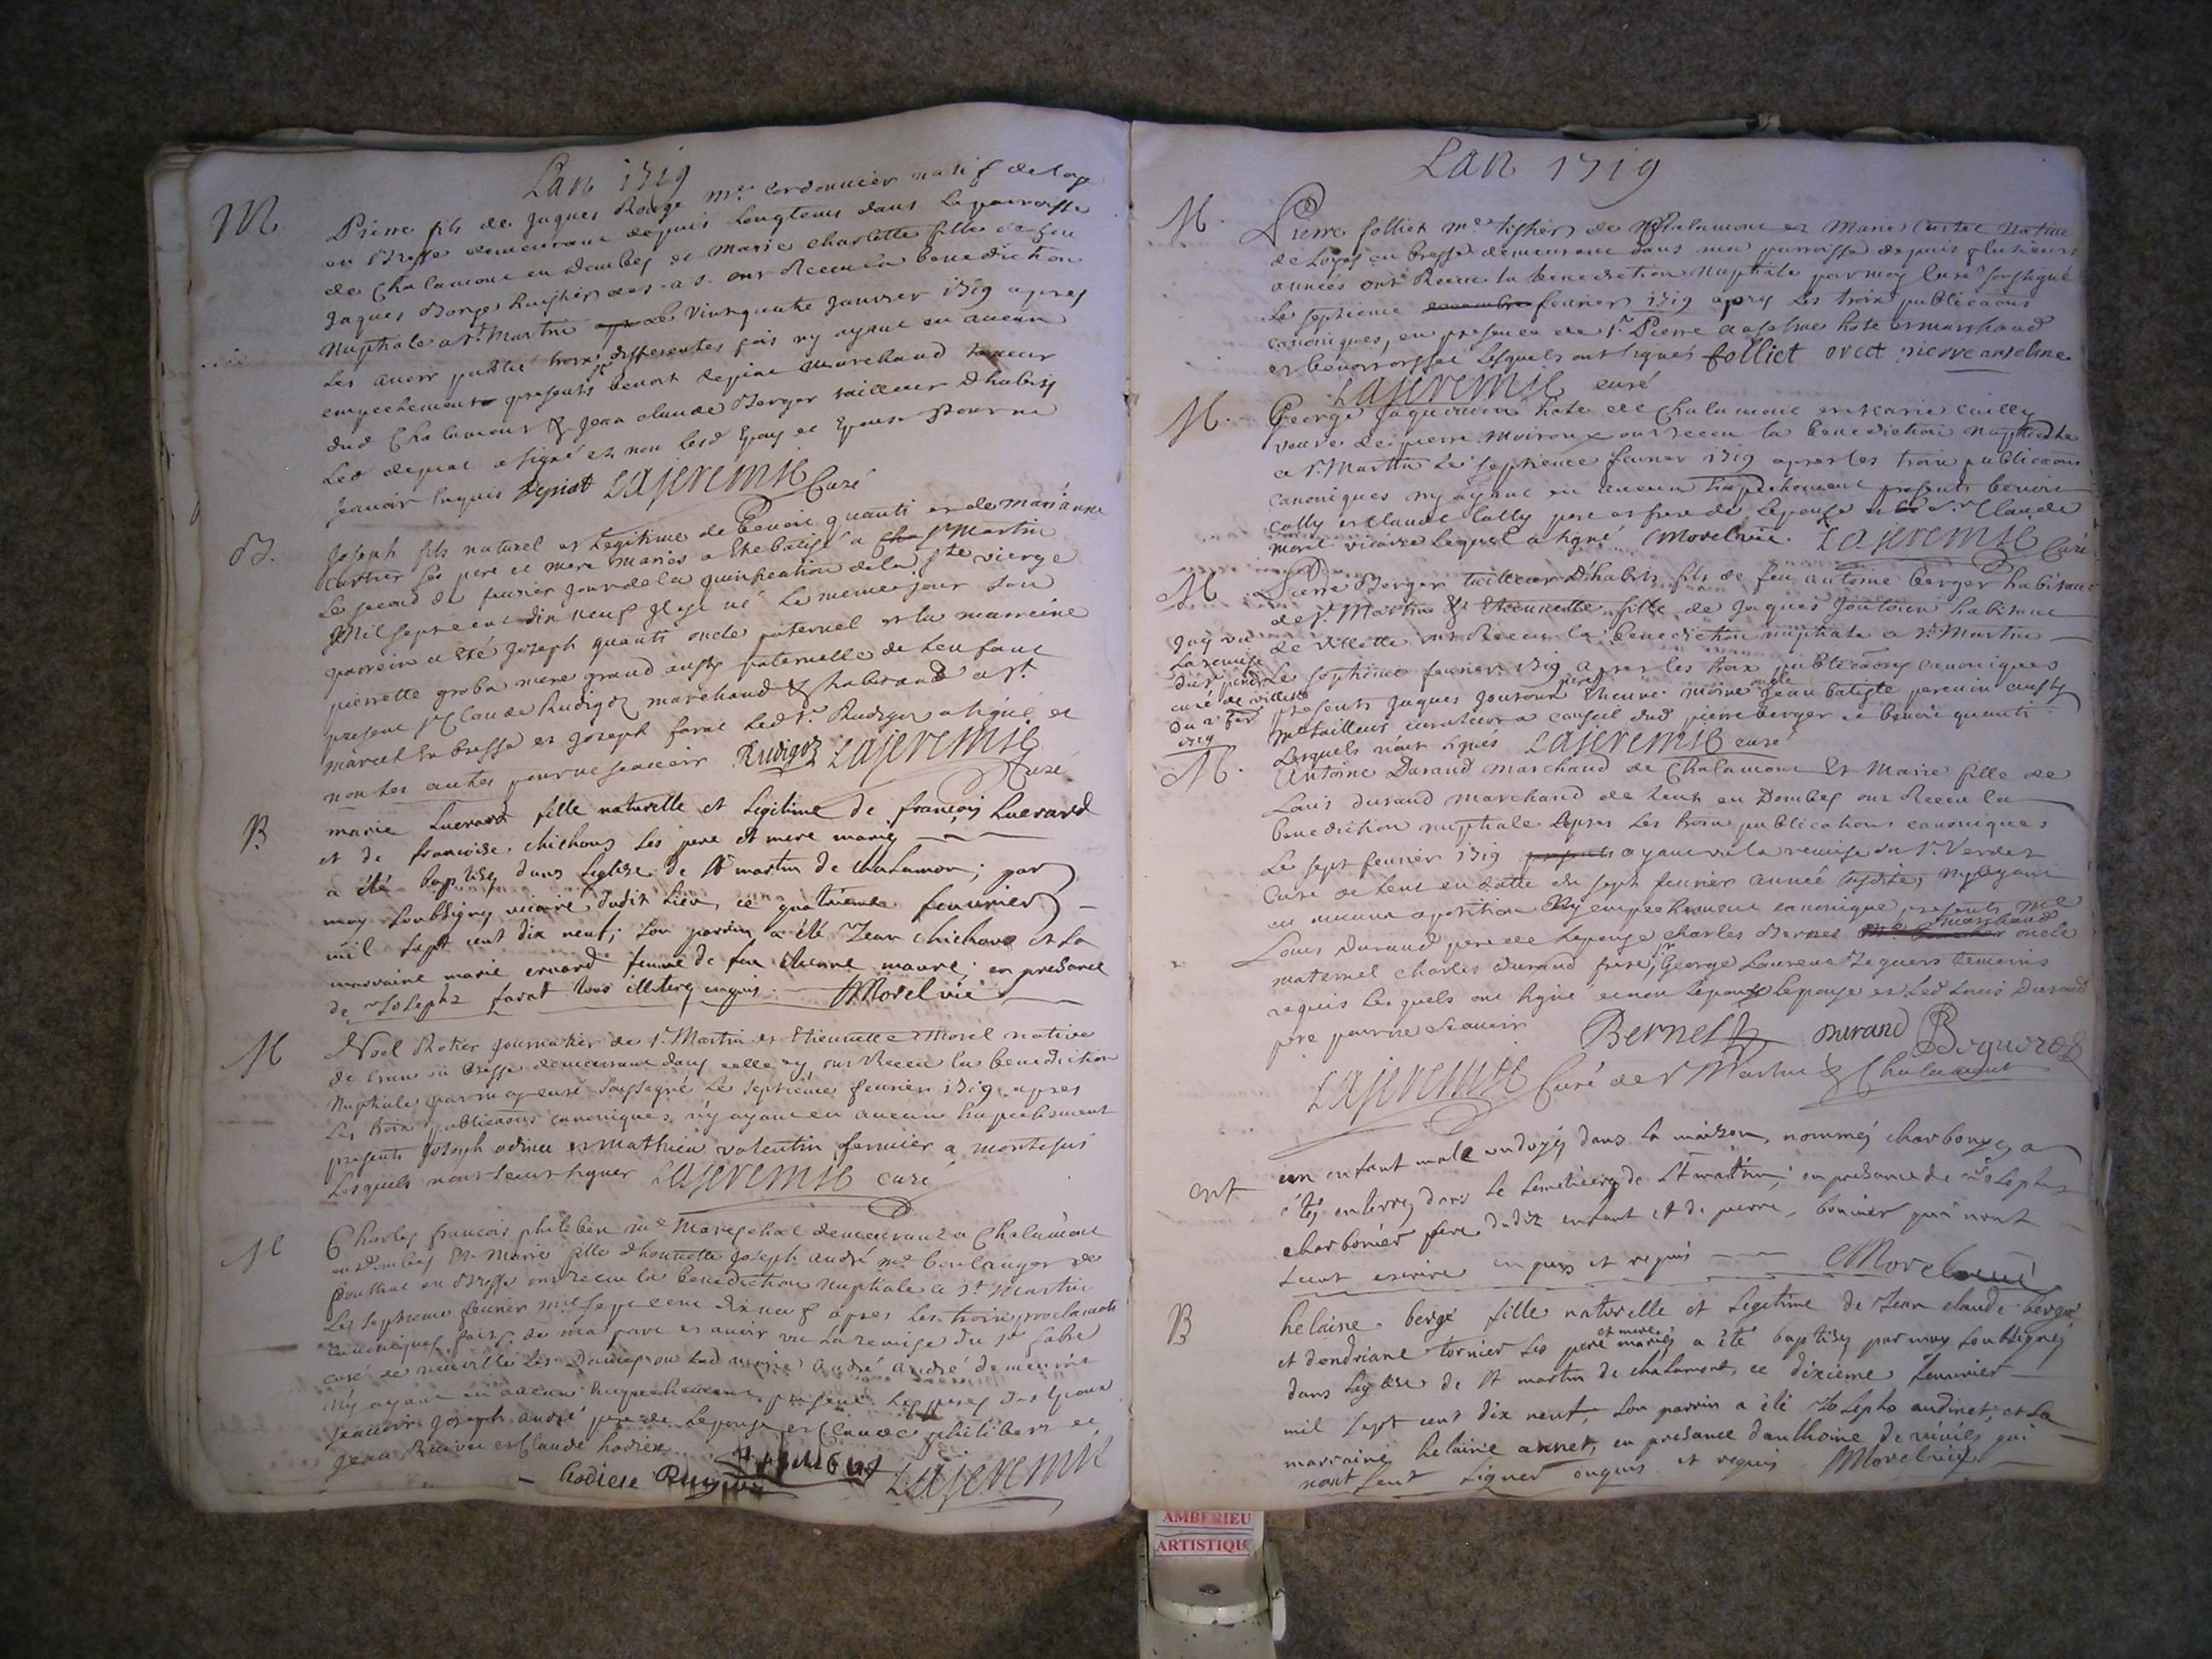 Lan 1719
M. Pierre fils de Jaques Rouge me cordonnier natif de loye
en Bresse demeurant depuis Longtems dans la parroisse
de Chalamont en Dombes et marie charlotte fille de feu
Jaques Borge huissier des a s. ont Receu la benediction
Nuptiale a St. Martin le Vint quatre Janvier 1719 apres
Les avoir publié trois differentes fois ny ayant eu aucun
empechement presents benoit depiat marchand taneur
dud Chalamont & Jean claude Berger tailleur Dhabits
Led depiat a signé et non lesd Epoux et Epouse Pour ne
scavoir Enquis Depiat LAJEREMIE Curé
B. Joseph fils naturel et Legitime de Benoit quanti et de marianne
cartier ses pere et mere mariés a Ete batisé a St Martin
Le second de fevrier jour de la purification de la ste vierge
Mil sept cent dix neuf Il est né Le meme jour son
parrein a Eté Joseph quanti oncle paternel et la marreine
pierrette groba mere grand aussy paternelle de Lenfant
present sr Claude Rudigoz marchand & habitand a st
marcel En bresse et Joseph favat Led sr. Rudigoz a signé et
non les autres pour ne scavoir Rudigoz LAJEREMIE
Curé
B marie Luerard fille naturelle et legitime de françois Luerard
et de francoise chichoux ses pere et mere mariés
a été baptisé dans leglise de st martin de chalamon; par
moy soubsigné vicaire dudit lieu, ce quatrieme feuvrier
mil sept cent dix neuf; son parrin a été Jean chichoux et sa
marraine marie evrard femme de feu etienne maure; en presance
de Joseph favat tous illiterez enquis. Morel vic
M Noel Rotier journalier de St. Martin et Etiennette Morel native
de cran en Bresse demeurant dans celle cy ont Receu la benediction
Nuptiale par moy curé soussigné Le septieme fevrier 1719 apres
Les trois publicaons canoniques n'y ayant eu aucun Empechement
presents Joseph odinet et mathieu valentin fermier a montesuis
Lesquels n'ont sceut signer LAJEREMIE curé
M Charles francois philibert me Mareschal demeurant a Chalamont
en Dombes Et Marie fille dhonnette Joseph andré me boulanger de
en Bresse ont receu la benediction Nuptiale a St Martin
Le septieme fevrier mil sept cent dix neuf apres Les trois proclamaons
canoniques faites de ma part et avoir vu La remise du sr fabre
curé de neuville Les Dames ou lad marie andré demeuroit
n'y ayant eu aucun Empechement present
scavoir Joseph andré pere de Lepouse et Claude philibert et
Jean et Claude hodieu
hodieu LAJEREMIE
Lan 1719
M. Pierre folliet me de Chalamont et Marie native
de Loyes en bresse demeurant dans ma parroisse depuis plusieurs
années ont Receu la benediction Nuptiale par moy Curé soussigné
Le septieme fevrier 1719 apres Les trois publicaons
canoniques, en presence de sr. Pierre anselme hote et marchand
et lesquels ont signés folliet pierre anselme
LAJEREMIE curé
M. George Jaquemin hote de Chalamont et marie cailly
veuve de pierre moiroux ont receu la benediction nuptiale
a St. Martin Le septieme fevrier 1719 apres les trois publicaons
canoniques ny ayant eu aucun Empechement presents benoit
Cally et Claude Cally pere et frere de Lepouse et Sr. Claude
morel vicaire Lequel a signé Morel vic. LAJEREMIE Curé
M Pierre Berger tailleur Dhabits fils de feu antoine berger habitant
de St. Martin & Etiennette fille de Jaques Joutoux habitant
de villette ont Receu la benediction nuptiale a St. Martin
Le septieme fevrier 1719 apres les trois publicaons canoniques
presents Jaques Joutoux pere Etienne moine oncle Jean batiste perouin aussy
me tailleur curateur a conseil dud pierre berger et benoit quanti
Lesquels n'ont signés LAJEREMIE curé
Jay vu
La remise
du sr
curé de villette
du 2e fev
1719
M. Antoine Durand marchand de Chalamont Et Marie fille de
Louis durand marchand de Lent en Dombes ont Receu la
benediction nuptiale apres Les trois publications canoniques
Le sept fevrier 1719 presents ayant vu la remise du sr. Verdet
Curé de Lent en datte du sept fevrier année susdite, Ny ayant
eu aucune oposition Ny empechement canonique presents me
Louis Durand pere de Lepouse Charles Bernet marchand oncle
maternel charles durand frere, sr George Laurent Beguers temoins
requis Lesquels ont signé et non Lepoux Lepouse et Led Louis Durand
pere pour ne scavoir Bernet Durand Beguero
LAJEREMIE Curé de St Martin & Chalamont
ent un enfant male ondoyé dans la maison, nommé charbonyer, a
étés enterrez dans le semetiere de st martin; en presance de Joseph
charbonier pere dudit enfant et de pierre, bouvier qui nont
sceut escrire enquis et requis Morel vic
B helaine bergé fille naturelle et legitime de Jean claude bergé
et dandriane tornier ses pere et mere mariés a été baptisez par moy soubsignés
dans leglise de st martin de chalamont, ce dixieme feuvrier
mil sept cent dix neuf, son parrin a été Joseph audinet; et sa
marraine helaine annet, en presance danthoine qui
nont seut signer enquis et requis Morel vic
AMBERIEU
ARTISTIQU